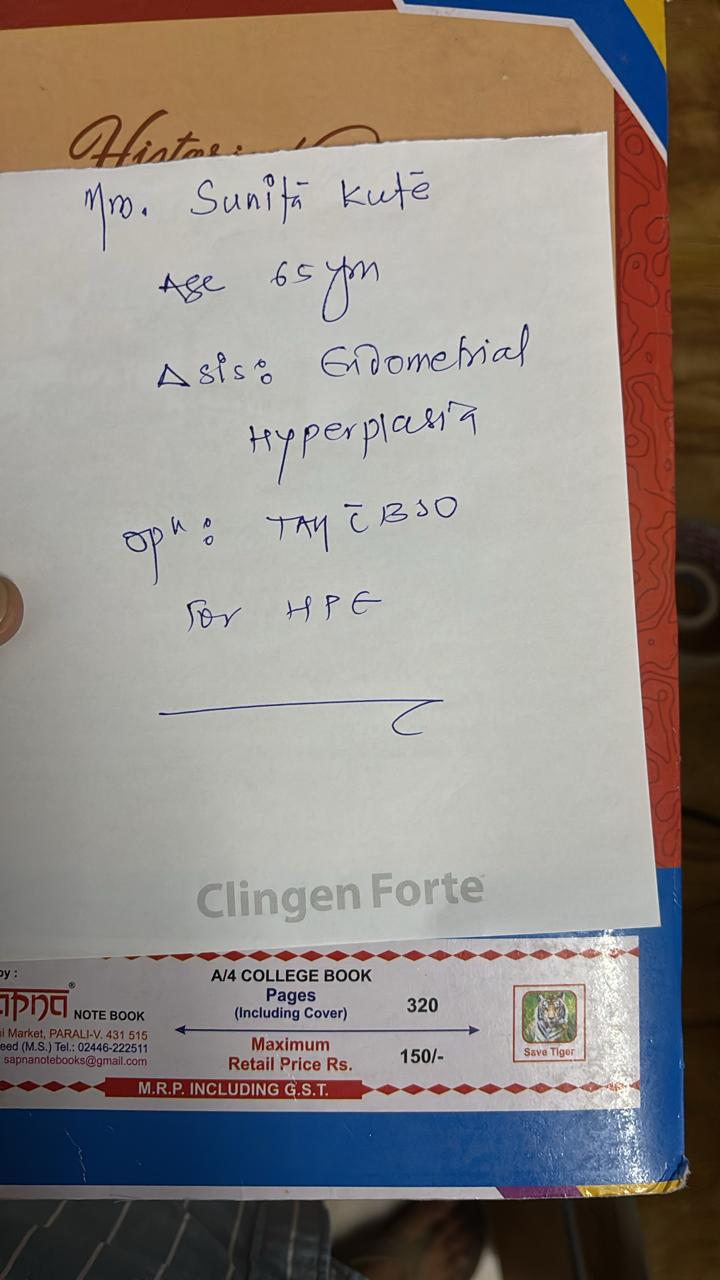 Mrs. Sunita Kute
Age 65 yrs
Δsis: Endometrial
Hyperplasia
opⁿ: TAH c̄ BSO
For HPE
Clingen Forte
by :
apna® NOTE BOOK
i Market, PARALI-V. 431 515
eed (M.S.) Tel.: 02446-222511
sapnanotebooks@gmail.com
A/4 COLLEGE BOOK
Pages
(Including Cover)
320
Maximum
Retail Price Rs.
150/-
M.R.P. INCLUDING G.S.T.
Save Tiger